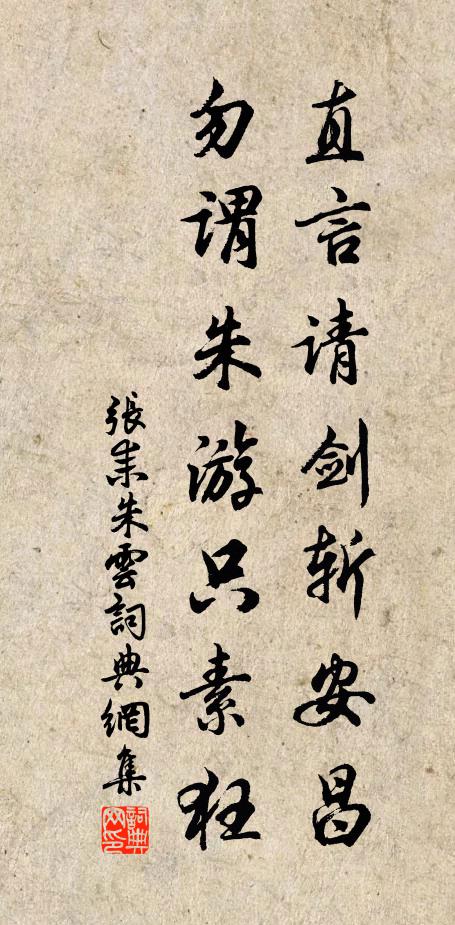 直言请剑斩安昌
勿谓朱游只素狂
張耒朱雲詞典網集
詞典网印